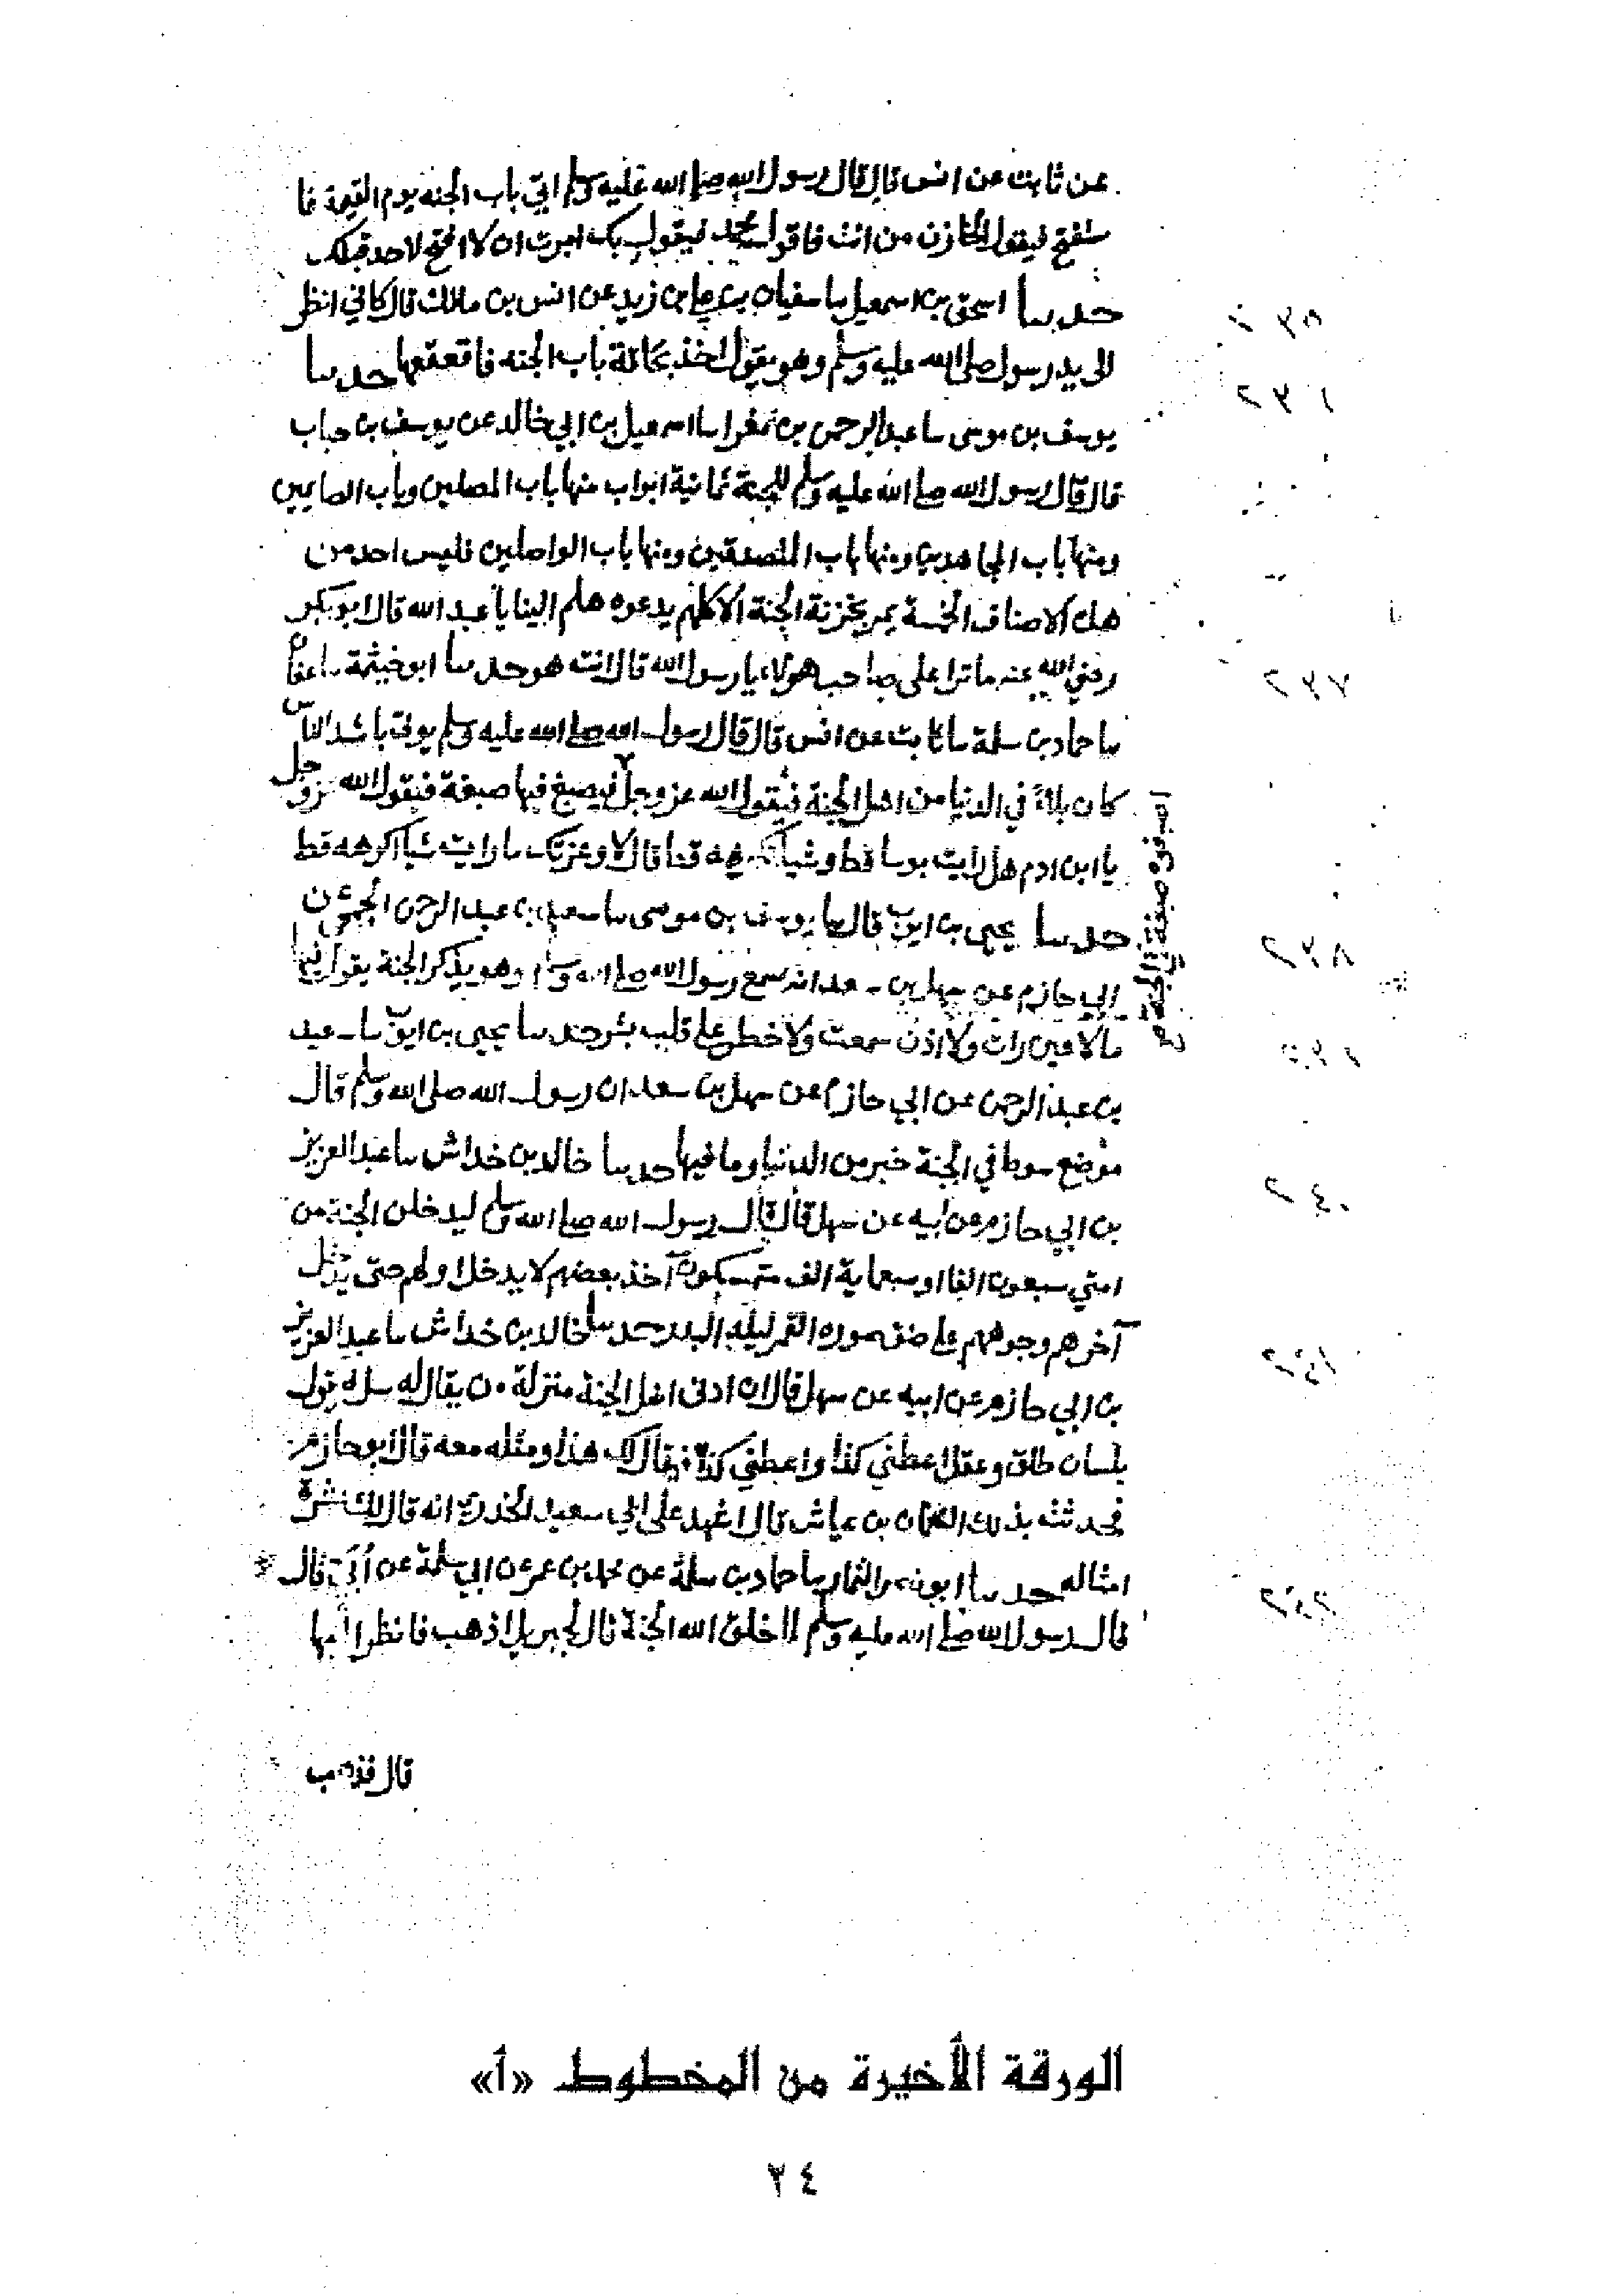 عن ثابت عن انس قال قال رسول الله صلى الله عليه وسلم اتي باب الجنه يوم القيمة فا
ستفتح فيقول الخازن من انت فاقول محمد فيقول بك امرت ان لا افتح لاحد قبلك
حدثنا اسحق بن اسمعيل سا سفيان بن علي بن زيد عن انس بن مالك قال كاني انظر
الى يد رسول صلى الله عليه وسلم وهو يقول اخذ بحلقة باب الجنه فاقعقعها حدثنا
يوسف بن موسى سا عبد الرحمن بن مغرا سا اسمعيل بن ابي خالد عن يوسف بن حباب
قال قال رسول الله صلى الله عليه وسلم للجنة ثمانية ابواب منها باب المصلين وباب الصايمين
ومنها باب المجاهدين ومنها باب المتصدقين ومنها باب الواصلين فليس احد من
هذه الاصناف الخمسة يمر بخزنة الجنة الا كلهم يدعوه هلم الينا يا عبد الله قال ابو بكر
رضي الله عنه ما ترا على صاحب هولاء يا رسول الله قال انت هو حدثنا ابو خيثمة سا عفان
سا حماد بن سلمة سا ثابت عن انس قال قال رسول الله صلى الله عليه وسلم يوتى باشد الناس
كان بلاءً في الدنيا من اهل الجنة فيقول الله عز وجل فيصبغ فيها صبغة فيقول الله عز وجل
يا ابن ادم هل رايت بوسا قط او شيأ تكرهه قط قال لا وعزتك ما رايت شيأ اكرهه قط
حدثنا يحيى بن ايوب قال سا يوسف بن موسى سا سعيد بن عبد الرحمن الجمحي عن
ابي حازم عن سهل بن سعد انه سمع رسول الله صلى الله وسلم وهو يذكر الجنة يقول فيها
مالا عين رات ولا اذن سمعت ولا خطر على قلب بشر حدثنا يحيى بن ايوب سا سعيد
بن عبد الرحمن عن ابي حازم عن سهل بن سعد ان رسول الله صلى الله وسلم قال
موضع سوط في الجنة خير من الدنيا وما فيها حدثنا خالد بن خداش سا عبد العزيز
بن ابي حازم عن ابيه عن سهل قال قال رسول الله صلى الله وسلم ليدخلن الجنة من
امتي سبعون الفا او سبعماية الف متمسكون آخذ بعضهم لا يدخل اولهم حتى يدخل
آخرهم وجوههم على ضؤ صوره القمر ليله البدر حدثنا خالد بن خداش سا عبد العزيز
بن ابي حازم عن ابيه عن سهل قال ان ادنى اهل الجنة منزلة من يقال له سل فيقول
بلسان طلق وعقل اعطني كذا واعطني كذا فيقال لك هذا ومثله معه قال ابو حازم
فحدثت بذلك النعمان بن عياش قال اشهد على ابي سعيد الخدري انه قال لك عشرة
امثاله حدثنا ابو نصر التمار سا حماد بن سلمة عن محمد بن عمر عن ابي سلمة عن قال
قال رسول الله صلى الله عليه وسلم لما خلق الله الجنة قال لجبريل اذهب فانظر اليها
قال فذهب
اصبغوه صبغة في الجنة صح
٢٣٥
٢٣٦
٢٣٧
٢٣٨
٢٣٩
٢٤٠
٢٤١
٢٤٢
الورقة الأخيرة من المخطوط «أ»
٢٤